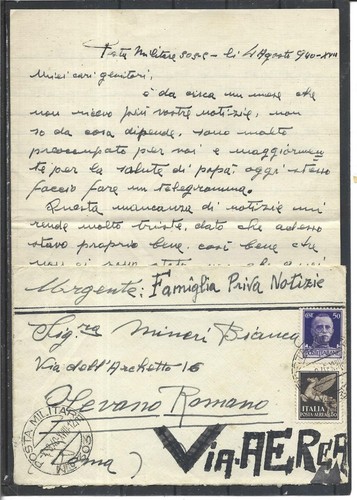 Posta Militare li 4 Agosto 940-XVIII
Miei cari genitori,
è da circa un mese che
non ricevo più vostre notizie, non
so da cosa dipende, sono molto
preoccupato per voi e maggiormen
te per la salute di papà oggi stesso
faccio fare un telegramma.
Questa mancanza di notizie mi
rende molto triste, dato che adesso
stavo proprio bene, così bene che
Urgente: Famiglia Priva Notizie
Sig.ra Mineri Bianca
Via dell'Archetto 16
Olevano Romano
(Roma)
Via AEREA
50
ITALIA
POSTA AEREA
POSTA MILITARE